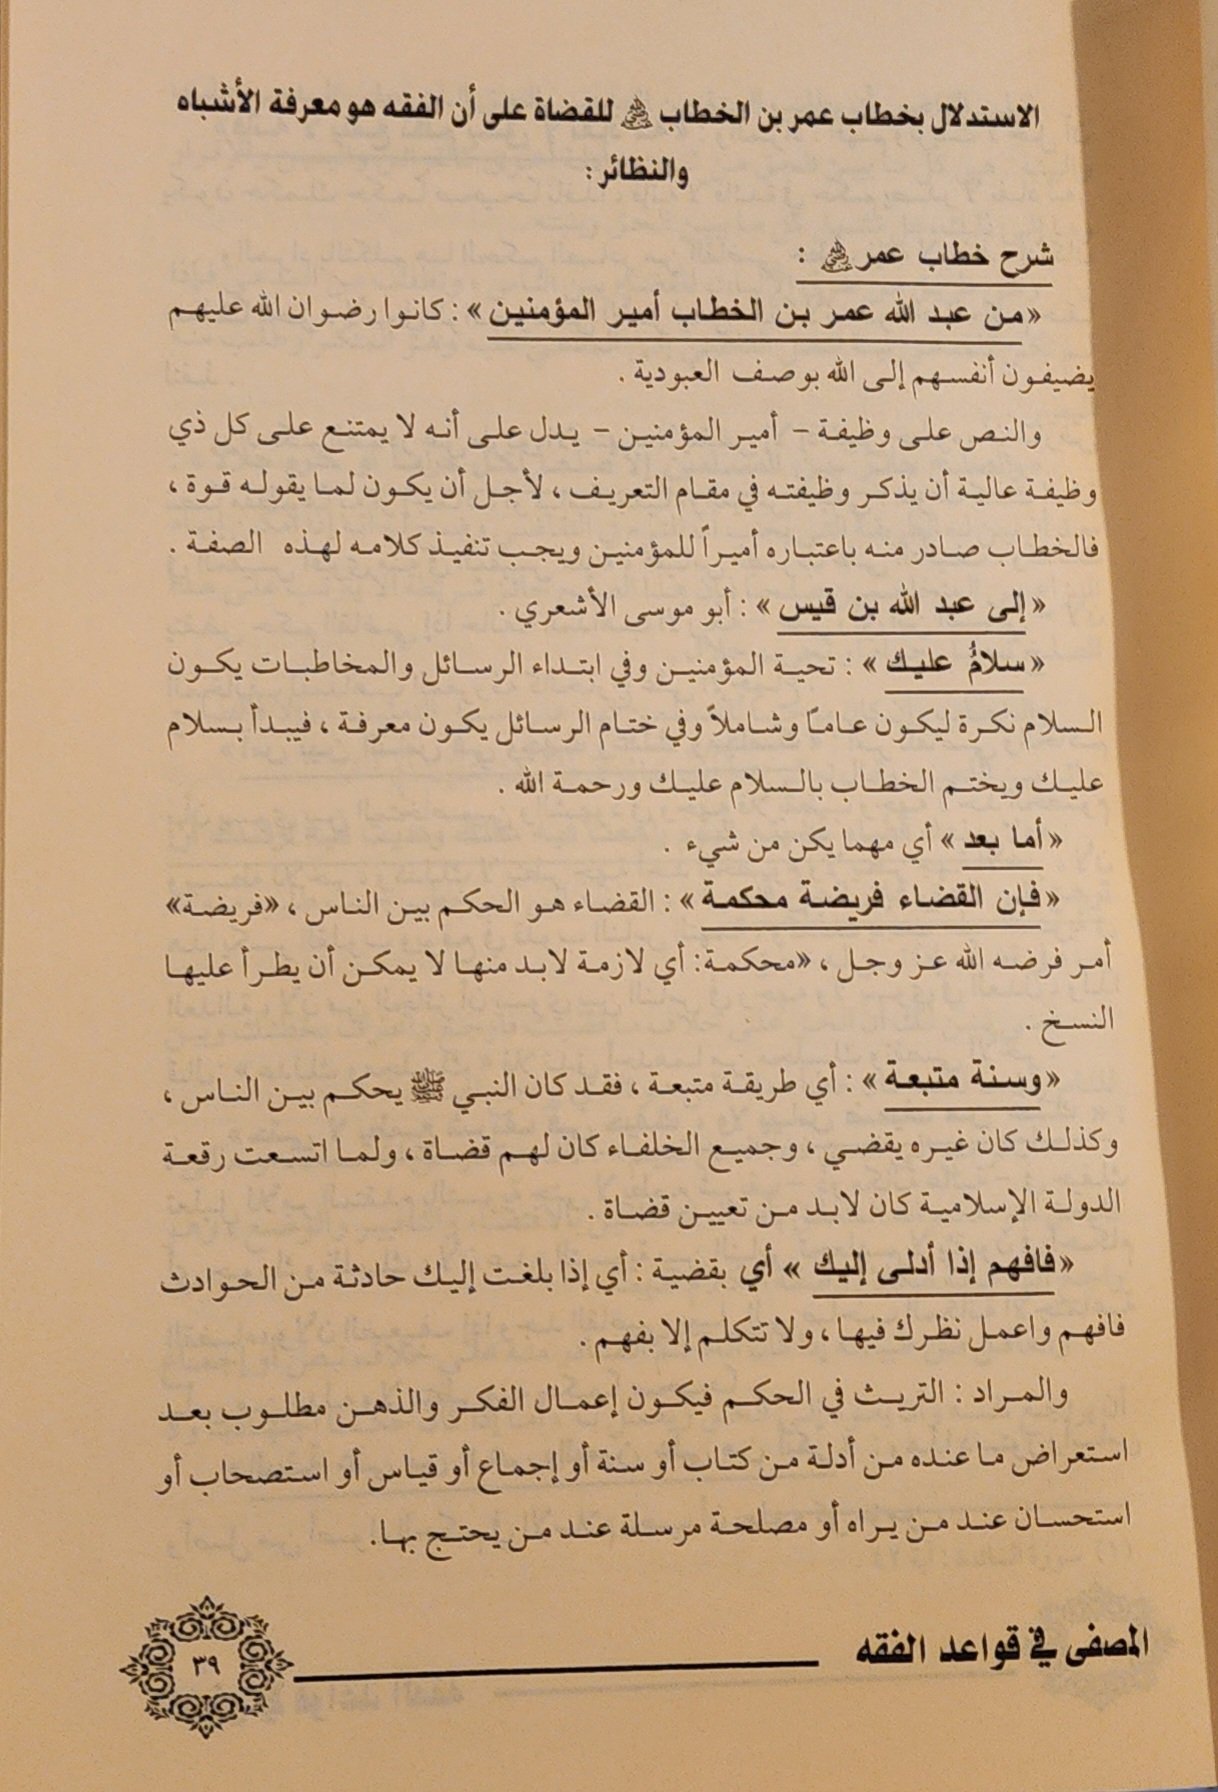 الاستدلال بخطاب عمر بن الخطاب رضي الله عنه للقضاة على أن الفقه هو معرفة الأشباه
والنظائر :
شرح خطاب عمر رضي الله عنه :
« من عبد الله عمر بن الخطاب أمير المؤمنين » : كانوا رضوان الله عليهم
يضيفون أنفسهم إلى الله بوصف العبودية .
والنص على وظيفة - أمير المؤمنين - يدل على أنه لا يمتنع على كل ذي
وظيفة عالية أن يذكر وظيفته في مقام التعريف ، لأجل أن يكون لما يقوله قوة ،
فالخطاب صادر منه باعتباره أميراً للمؤمنين ويجب تنفيذ كلامه لهذه الصفة .
« إلى عبد الله بن قيس » : أبو موسى الأشعري .
« سلامٌ عليك » : تحية المؤمنين وفي ابتداء الرسائل والمخاطبات يكون
السلام نكرة ليكون عامًا وشاملاً وفي ختام الرسائل يكون معرفة ، فيبدأ بسلام
عليك ويختم الخطاب بالسلام عليك ورحمة الله .
« أما بعد » أي مهما يكن من شيء .
« فإن القضاء فريضة محكمة » : القضاء هو الحكم بين الناس ، «فريضة»
أمر فرضه الله عز وجل ، «محكمة : أي لازمة لابد منها لا يمكن أن يطرأ عليها
النسخ .
« وسنة متبعة » : أي طريقة متبعة ، فقد كان النبي ﷺ يحكم بين الناس ،
وكذلك كان غيره يقضي ، وجميع الخلفاء كان لهم قضاة ، ولما اتسعت رقعة
الدولة الإسلامية كان لابد من تعيين قضاة .
« فافهم إذا أدلى إليك » أي بقضية : أي إذا بلغت إليك حادثة من الحوادث
فافهم واعمل نظرك فيها ، ولا تتكلم إلا بفهم .
والمراد : التريث في الحكم فيكون إعمال الفكر والذهن مطلوب بعد
استعراض ما عنده من أدلة من كتاب أو سنة أو إجماع أو قياس أو استصحاب أو
استحسان عند من يراه أو مصلحة مرسلة عند من يحتج بها.
المصفى في قواعد الفقه
٣٩